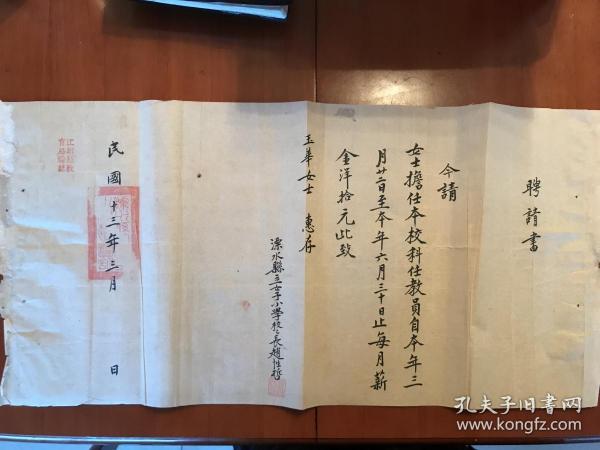 聘請書
今請
女士擔任本校科任教員自本年三
月廿二日至本年六月三十日止每月薪
金洋拾元此致
玉華女士 惠存
溧水縣立女子小學校長趙性哲
民國十三年三月 日
孔夫子旧书网
www.kongfz.com